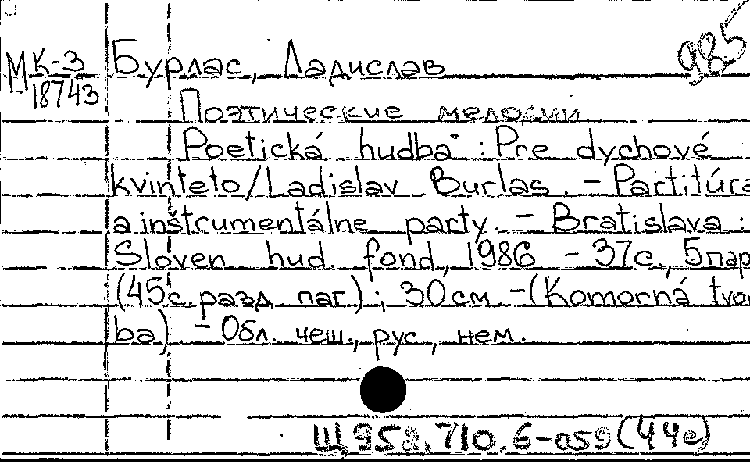 985
МК-3 Бурлас, Ладислав
18743
Поэтические мелодии
Poetická hudba : Pre dychové
kvinteto/Ladislav Burlas. - Partitúra
a inštrumentálne party. - Bratislava :
Sloven hud. fond, 1986 - 37с., 5 пар
(45с. разд. паг.) ; 30 см. - (Komorná tvor
ba) - Обл. чеш., рус., нем.
Щ958.710.6-059(44е)